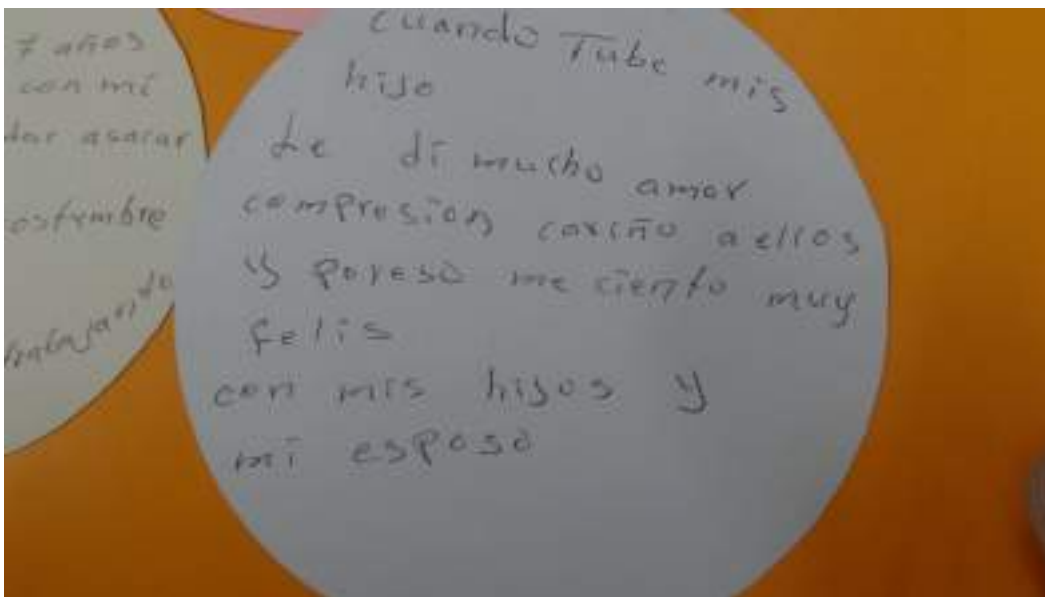 7 años
con mi
asacar
ostumbre
trabajando
cuando Tube mis
hijo
Le di mucho amor
compresion cariño aellos
y poreso me ciento muy
felis
con mis hijos y
mi esposo